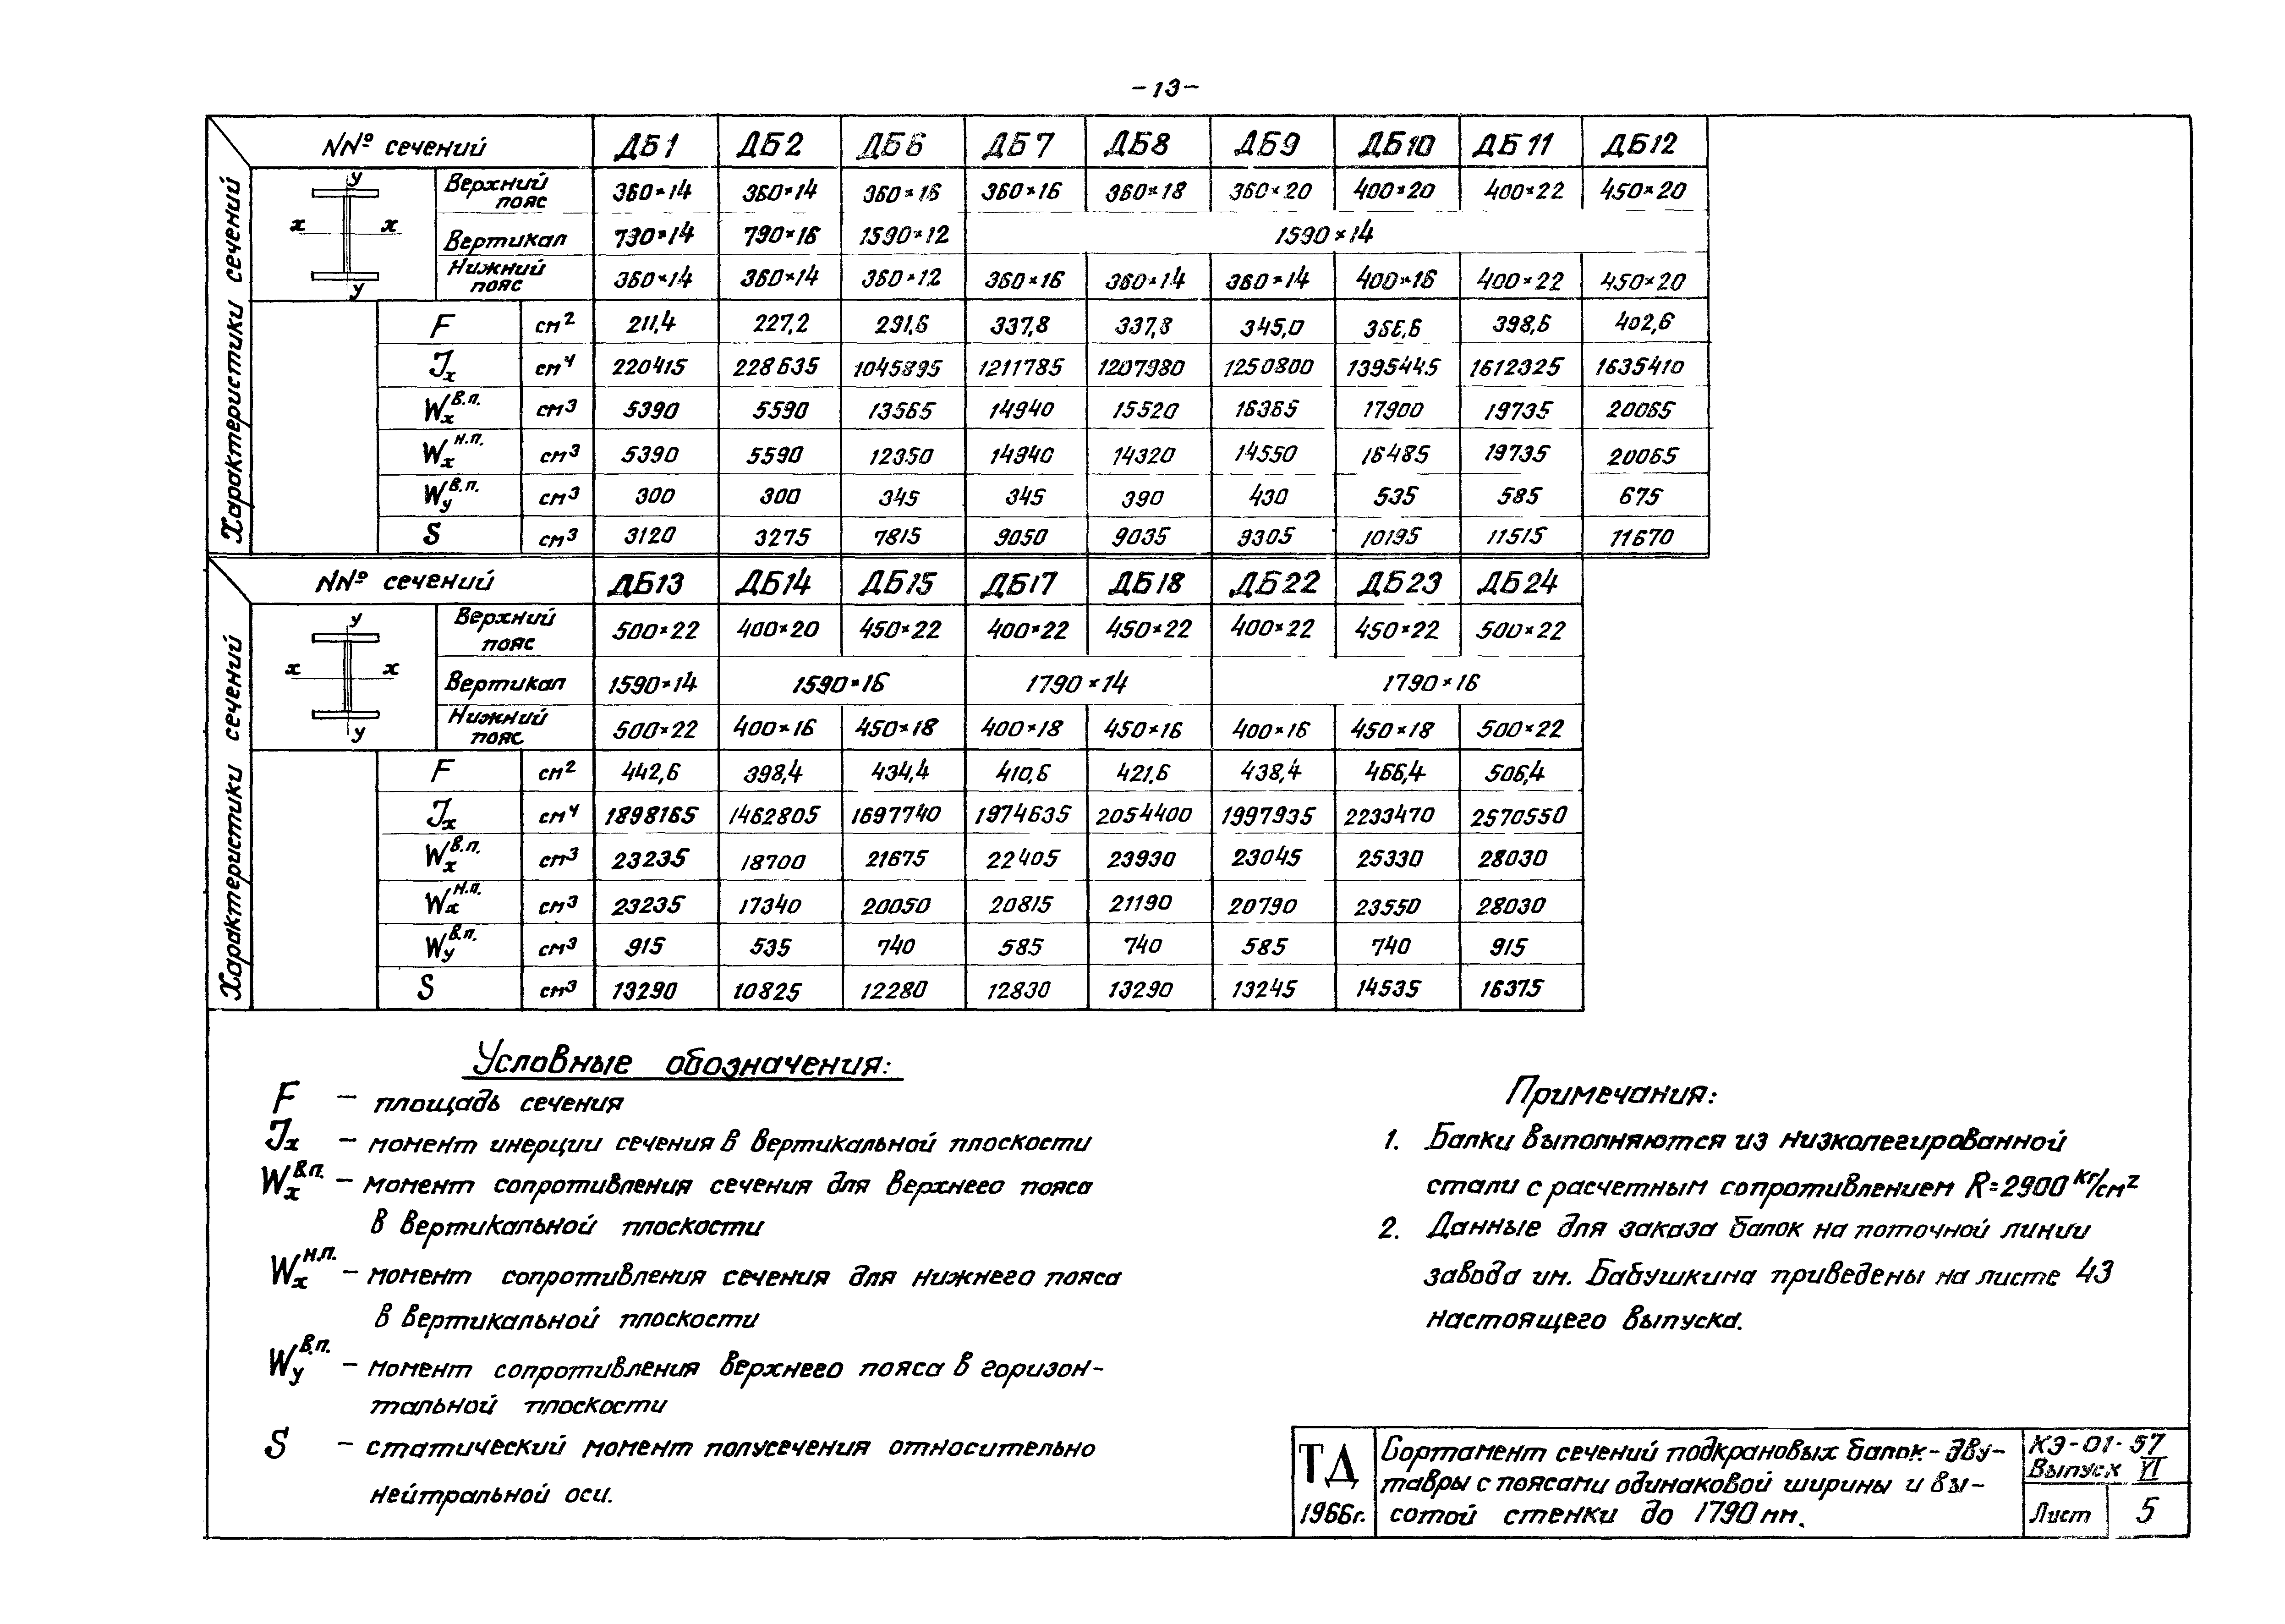 -13-
NNº сечений ДБ1 ДБ2 ДБ6 ДБ7 ДБ8 ДБ9 ДБ10 ДБ11 ДБ12
Характеристики сечений
y x x y
Верхний пояс 360×14 360×14 360×16 360×16 360×18 360×20 400×20 400×22 450×20
Вертикал 790×14 790×16 1590×12 1590×14
Нижний пояс 360×14 360×14 360×12 360×16 360×14 360×14 400×16 400×22 450×20
F см² 211,4 227,2 291,6 337,8 337,8 345,0 366,6 398,6 402,6
Jx см⁴ 220415 228635 1045895 1211785 1207980 1250800 1395445 1612325 1635410
Wx в.п. см³ 5390 5590 13565 14940 15520 16365 17900 19735 20065
Wx н.п. см³ 5390 5590 12350 14940 14320 14550 16485 19735 20065
Wy в.п. см³ 300 300 345 345 390 430 535 585 675
S см³ 3120 3275 7815 9050 9035 9305 10195 11515 11670
NNº сечений ДБ13 ДБ14 ДБ15 ДБ17 ДБ18 ДБ22 ДБ23 ДБ24
Характеристики сечений
y x x y
Верхний пояс 500×22 400×20 450×22 400×22 450×22 400×22 450×22 500×22
Вертикал 1590×14 1590×16 1790×14 1790×16
Нижний пояс 500×22 400×16 450×18 400×18 450×16 400×16 450×18 500×22
F см² 442,6 398,4 434,4 410,6 421,6 438,4 466,4 506,4
Jx см⁴ 1898165 1462805 1697740 1974635 2054400 1997935 2233470 2570550
Wx в.п. см³ 23235 18700 21675 22405 23930 23045 25330 28030
Wx н.п. см³ 23235 17340 20050 20815 21190 20790 23550 28030
Wy в.п. см³ 915 535 740 585 740 585 740 915
S см³ 13290 10825 12280 12830 13290 13245 14535 16375
Условные обозначения:
F – площадь сечения
Jx – момент инерции сечения в вертикальной плоскости
Wx в.п. – момент сопротивления сечения для верхнего пояса
в вертикальной плоскости
Wx н.п. – момент сопротивления сечения для нижнего пояса
в вертикальной плоскости
Wy в.п. – момент сопротивления верхнего пояса в горизон-
тальной плоскости
S – статический момент полусечения относительно
нейтральной оси.
Примечания:
1. Балки выполняются из низколегированной
стали с расчетным сопротивлением R=2900 кг/см²
2. Данные для заказа балок на поточной линии
завода им. Бабушкина приведены на листе 43
настоящего выпуска.
ТД
1966г.
Сортамент сечений подкрановых балок-дву-
тавры с поясами одинаковой ширины и вы-
сотой стенки до 1790 мм.
КЭ-01-57
Выпуск VI
Лист 5